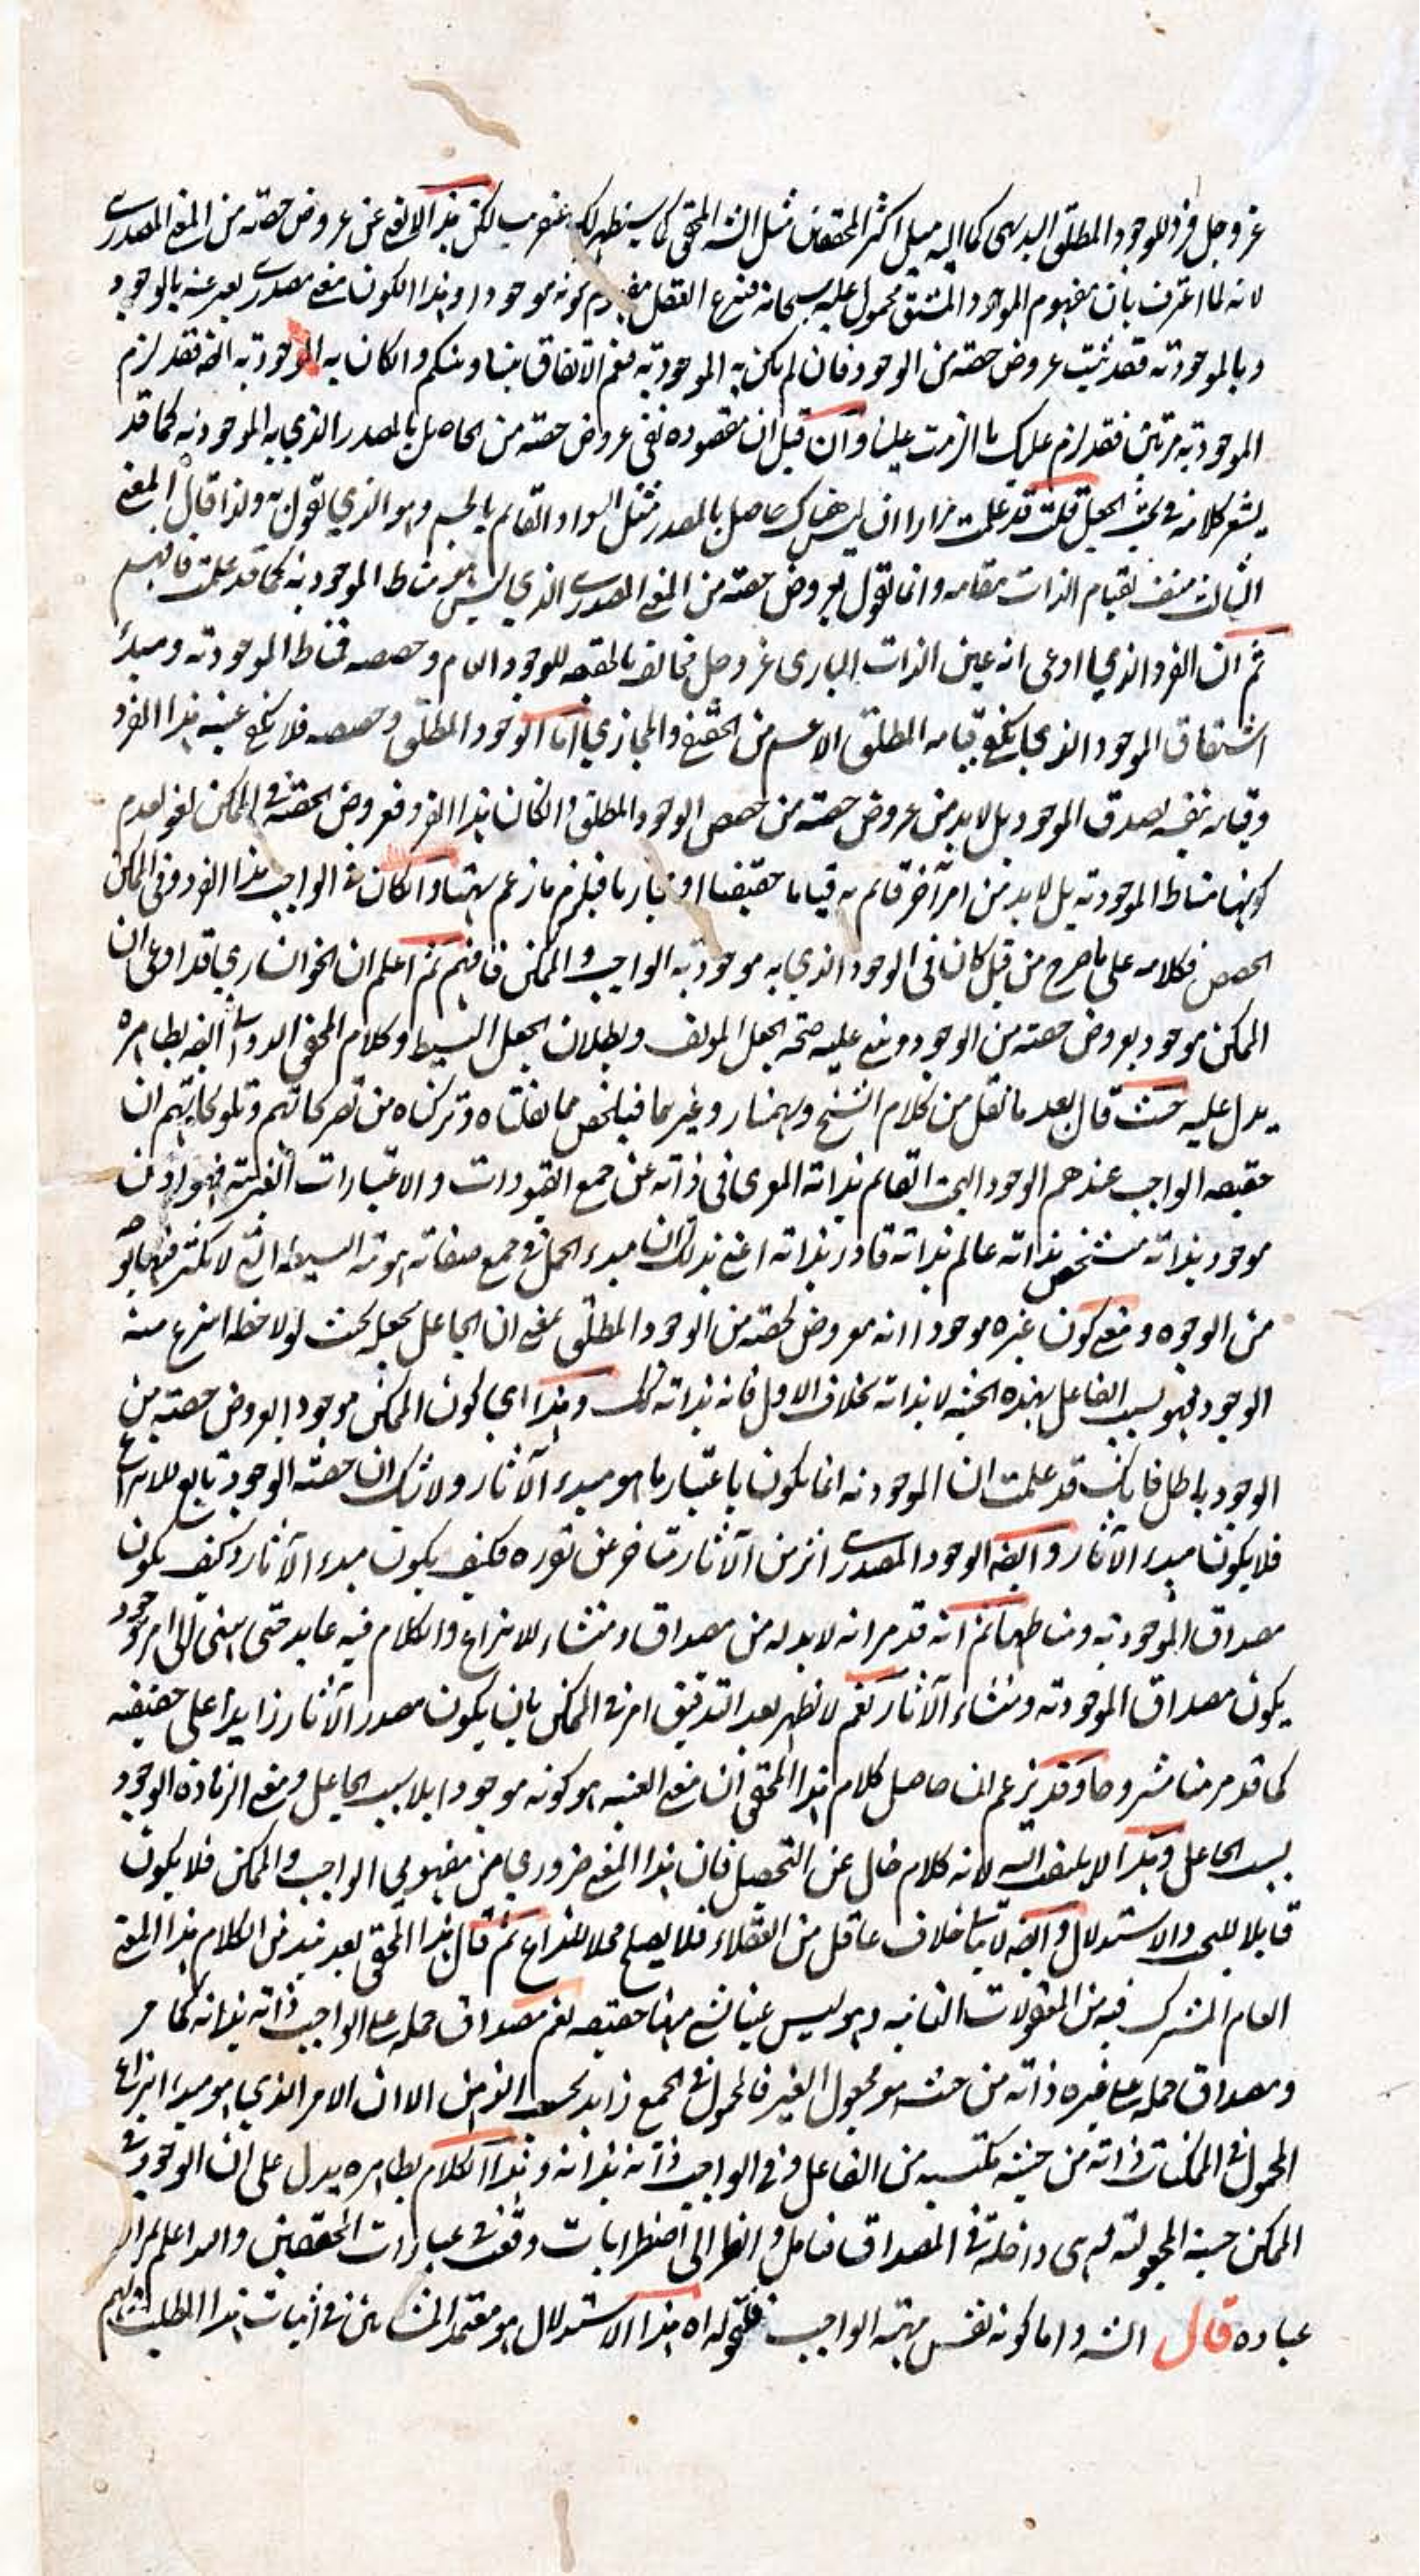 عز وجل فرد للوجود المطلق البديهى كما اليه ميل اكثر المحققين مثل الشه المحقق كما سيظهر لك عنقريب لكن هذا لا يغنى عن عروض حصة من المعنى المصدرى
لانه لما اعترف بان مفهوم الموجود المشتق محمول عليه سبحانه فينتزع العقل مفهوم كونه موجودا وهذا الكون معنى مصدرى يعبر عنه بالوجود
وبالموجودية فقد ثبت عروض حصة من الوجود فان لم يكن به الموجودية فنعم الاتفاق بيننا وبينكم وان كان به الموجودية ايضه فقد لزم
الموجودية مرتين فقد لزم عليك ما الزمت علينا وان قيل ان مقصوده نفى عروض حصة من الحاصل بالمصدر الذي به الموجودية كما قد
يشعر كلامه فى بحث الجعل قلت قد علمت مرارا ان ليس هناك حاصل بالمصدر مثل السواد القائم بالجسم وهو الذي نقول به ولذا قال المعنى
الثالث منتف لقيام الذات مقامه وانما نقول بعروض حصة من المعنى المصدرى الذي ليس هو مناط الموجودية كما قد علمت فافهم
ثم ان الفرد الذي ادعى انه عين الذات البارى عز وجل مخالف بالحقيقه للوجود العام وحصصه فمناط الموجودية ومبدأ
اشتقاق الموجود الذي يكفى قيامه المطلق الاعم من الحقيقى والمجازي اما الوجود المطلق وحصصه فلا يكفى عينية هذا الفرد
وقيامه بنفسه لصدق الموجود بل لا بد من عروض حصة من حصص الوجود المطلق وان كان هذا الفرد فعروض الحصة فى الممكن لغو لعدم
كونها مناط الموجودية بل لا بد من امر آخر قائم به قياما حقيقيا او مجازيا فيلزم ما زعم بهتانا وان كان فى الواجب هذا الفرد وفى الممكن
الحصص فكلامه على ما صرح من قبل كان فى الوجود الذي به موجودية الواجب والممكن فافهم ثم اعلم ان الخوانساري قد ادعى ان
الممكن موجود بعروض حصة من الوجود وبنى عليه صحة الجعل المولف وبطلان الجعل البسيط وكلام المحقق الدوانى ايضه بظاهره
يدل عليه حيث قال بعد ما نقل من كلام الشيخ وبهمنيار وغيرهما فيلخص مما نقلناه وتركناه من تصريحاتهم وتلويحاتهم ان
حقيقه الواجب عندهم الوجود البحت القائم بذاته المعرى فى ذاته عن جميع القيودات والاعتبارات الغيرية فهو اذن
موجود بذاته متشخص بذاته عالم بذاته قادر بذاته اعنى بذلك ان مبدء الحمل فى جميع صفاته هويته البسيطه التى لا تكثر فيها بوجه
من الوجوه ومعنى كون غيره موجودا انه معروض لحصة من الوجود المطلق بمعنى ان الجاعل يجعله بحيث لو لاحظه انتزع منه
الوجود فهو بسبب الفاعل بهذه الحيثية لا بذاته بخلاف الاول فانه بذاته كذلك وهذا اي كون الممكن موجودا بعروض حصة من
الوجود باطل فانك قد علمت ان الموجودية انما يكون باعتبار ما هو مبدء الآثار ولا شك ان حصة الوجود تابع للانتزاع
فلا يكون مبدء الآثار وايضه الوجود المصدرى اثر من الآثار متاخر عن تقرره فكيف يكون مبدء الآثار وكيف يكون
مصداق الموجودية ومناطها ثم انه قد مر انه لا بد له من مصداق ومنشاء للانتزاع والكلام فيه عايد حتى انتهى الى امر موجود
يكون مصداق الموجودية ومنشاء الآثار نعم لا يظهر بعد التدقيق امر فى الممكن بان يكون مصدر الآثار زايدا على حقيقته
كما قد مر منا مشروحا وقد يزعم ان حاصل كلام هذا المحقق ان معنى العينية هو كونه موجودا بلا سبب الجاعل ومعنى الزيادة الوجود
بسبب الجاعل وهذا لا يلتفت اليه لانه كلام خال عن التحصيل فان هذا المعنى ضروري من مفهومى الواجب والممكن فلا يكون
قابلا للبحث والاستدلال وايضه لا يتاتى خلاف عاقل من العقلاء فلا يصلح محلا للنزاع ثم قال هذا المحقق بعد نبذ من الكلام هذا المعنى
العام المشترك فيه من المعقولات الثانيه وهو ليس عينا لشئ منها حقيقه نعم مصداق حمله على الواجب ذاته بذاته كما مر
ومصداق حمله على غيره ذاته من حيث هو مجعول الغير فالمحمول فى الجميع زايد بحسب الذهن الا ان الامر الذي هو مبدء انتزاع
المحمول فى الممكنات ذاته من حيثية مكتسبه من الفاعل وفى الواجب ذاته بذاته وهذا الكلام بظاهره يدل على ان الوجود فى
الممكن حيثية المجعولية فهى داخلة فى المصداق فتامل وانظر الى اضطرابات وقعت فى عبارات المحققين والله اعلم بمراد
عباده قال الشه واما كونه نفس مهية الواجب فلقوله اه هذا الاستدلال هو معتمد المشائين فى اثبات هذا المطلب